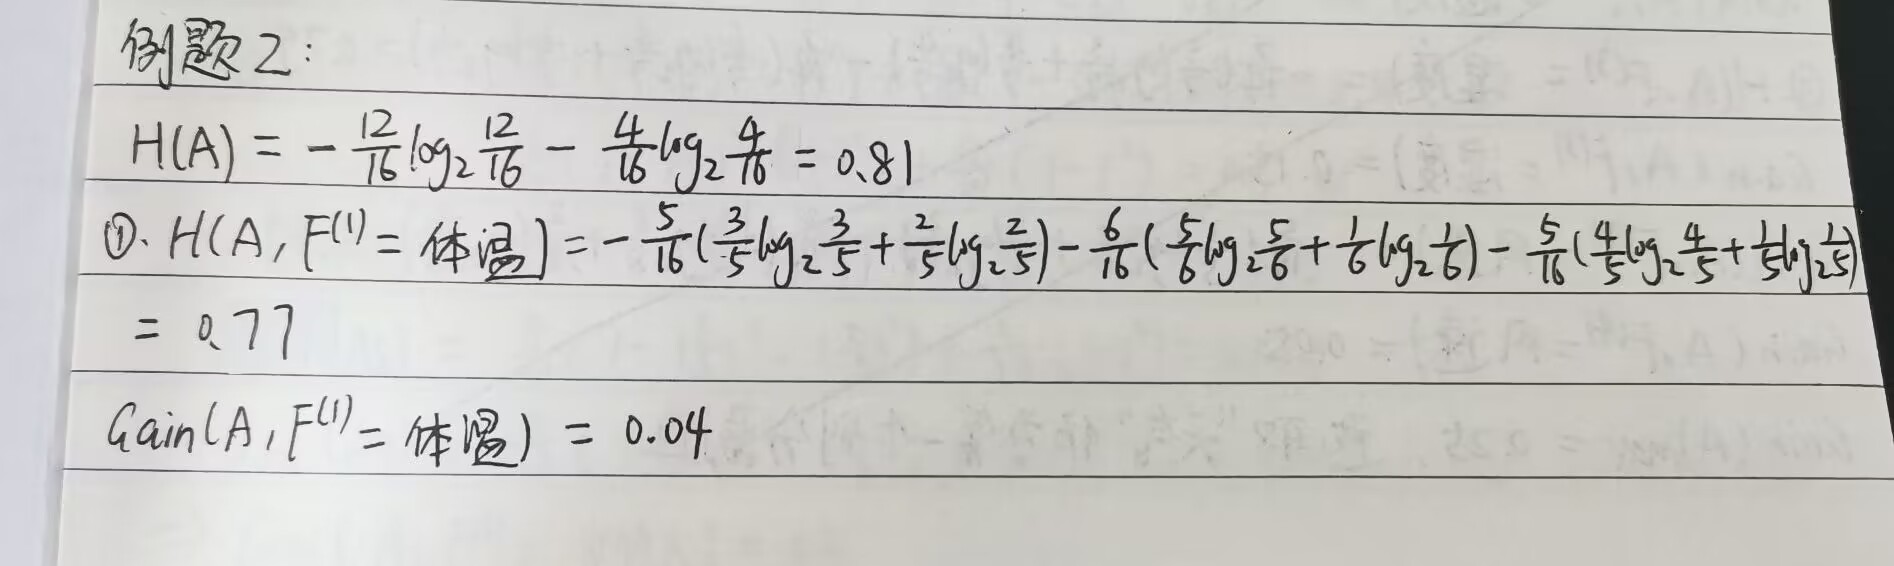 例题2:
H(A) = - 12/16 log₂ 12/16 - 4/16 log₂ 4/16 = 0.81
①. H(A, F⁽¹⁾ = 体温) = - 5/16 (3/5 log₂ 3/5 + 2/5 log₂ 2/5) - 6/16 (5/6 log₂ 5/6 + 1/6 log₂ 1/6) - 5/16 (4/5 log₂ 4/5 + 1/5 log₂ 1/5)
= 0.77
Gain(A, F⁽¹⁾ = 体温) = 0.04